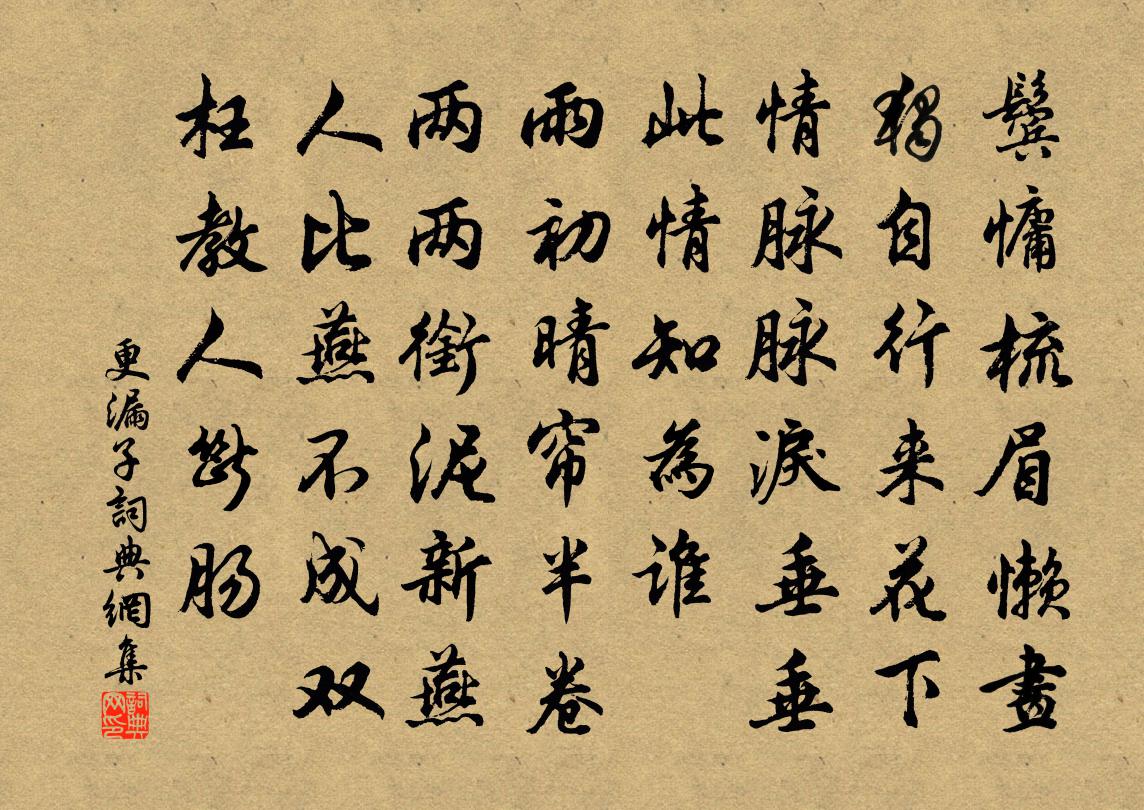 鬓慵梳眉懒畫
独自行来花下
情脉脉淚垂垂
此情知為谁
雨初晴帘半卷
两两銜泥新燕
人比燕不成双
枉教人断肠
更漏子詞典網集
詞典网印